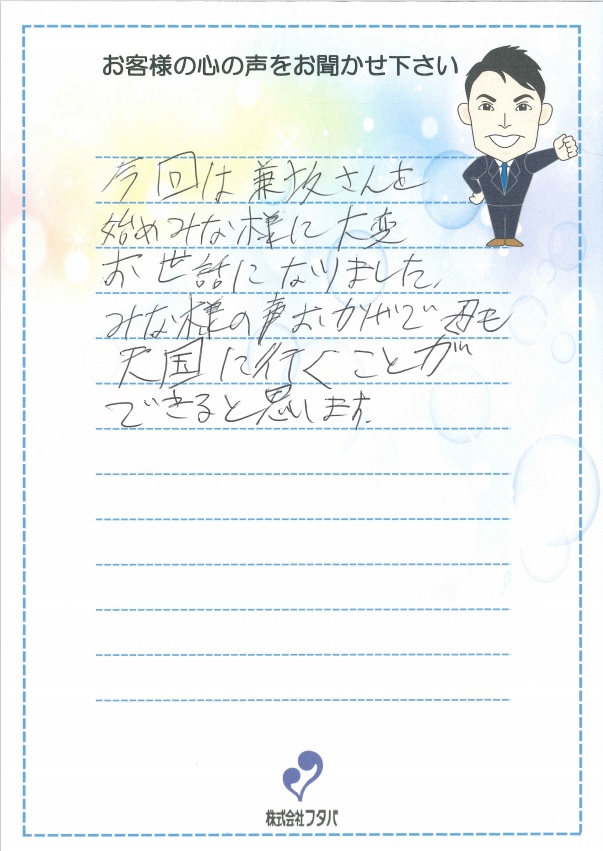 お客様の心の声をお聞かせ下さい
今回は兼坂さんを
始めみな様に大変
お世話になりました。
みな様の声おかげで母も
天国に行くことが
できると思います。
株式会社フタバ